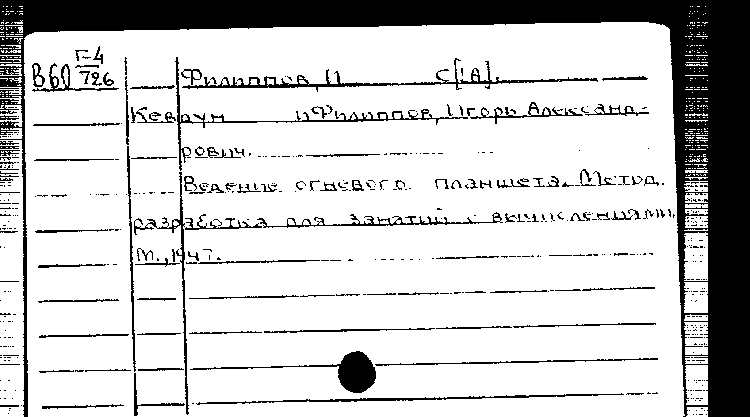 В60 Г-4/726
Филиппов, И С[!А].
Кевдун и Филиппов, Игорь Александ-
рович.
Ведение огневого планшета. Метод.
разработка для занятий с вычислениями
М., 1947.